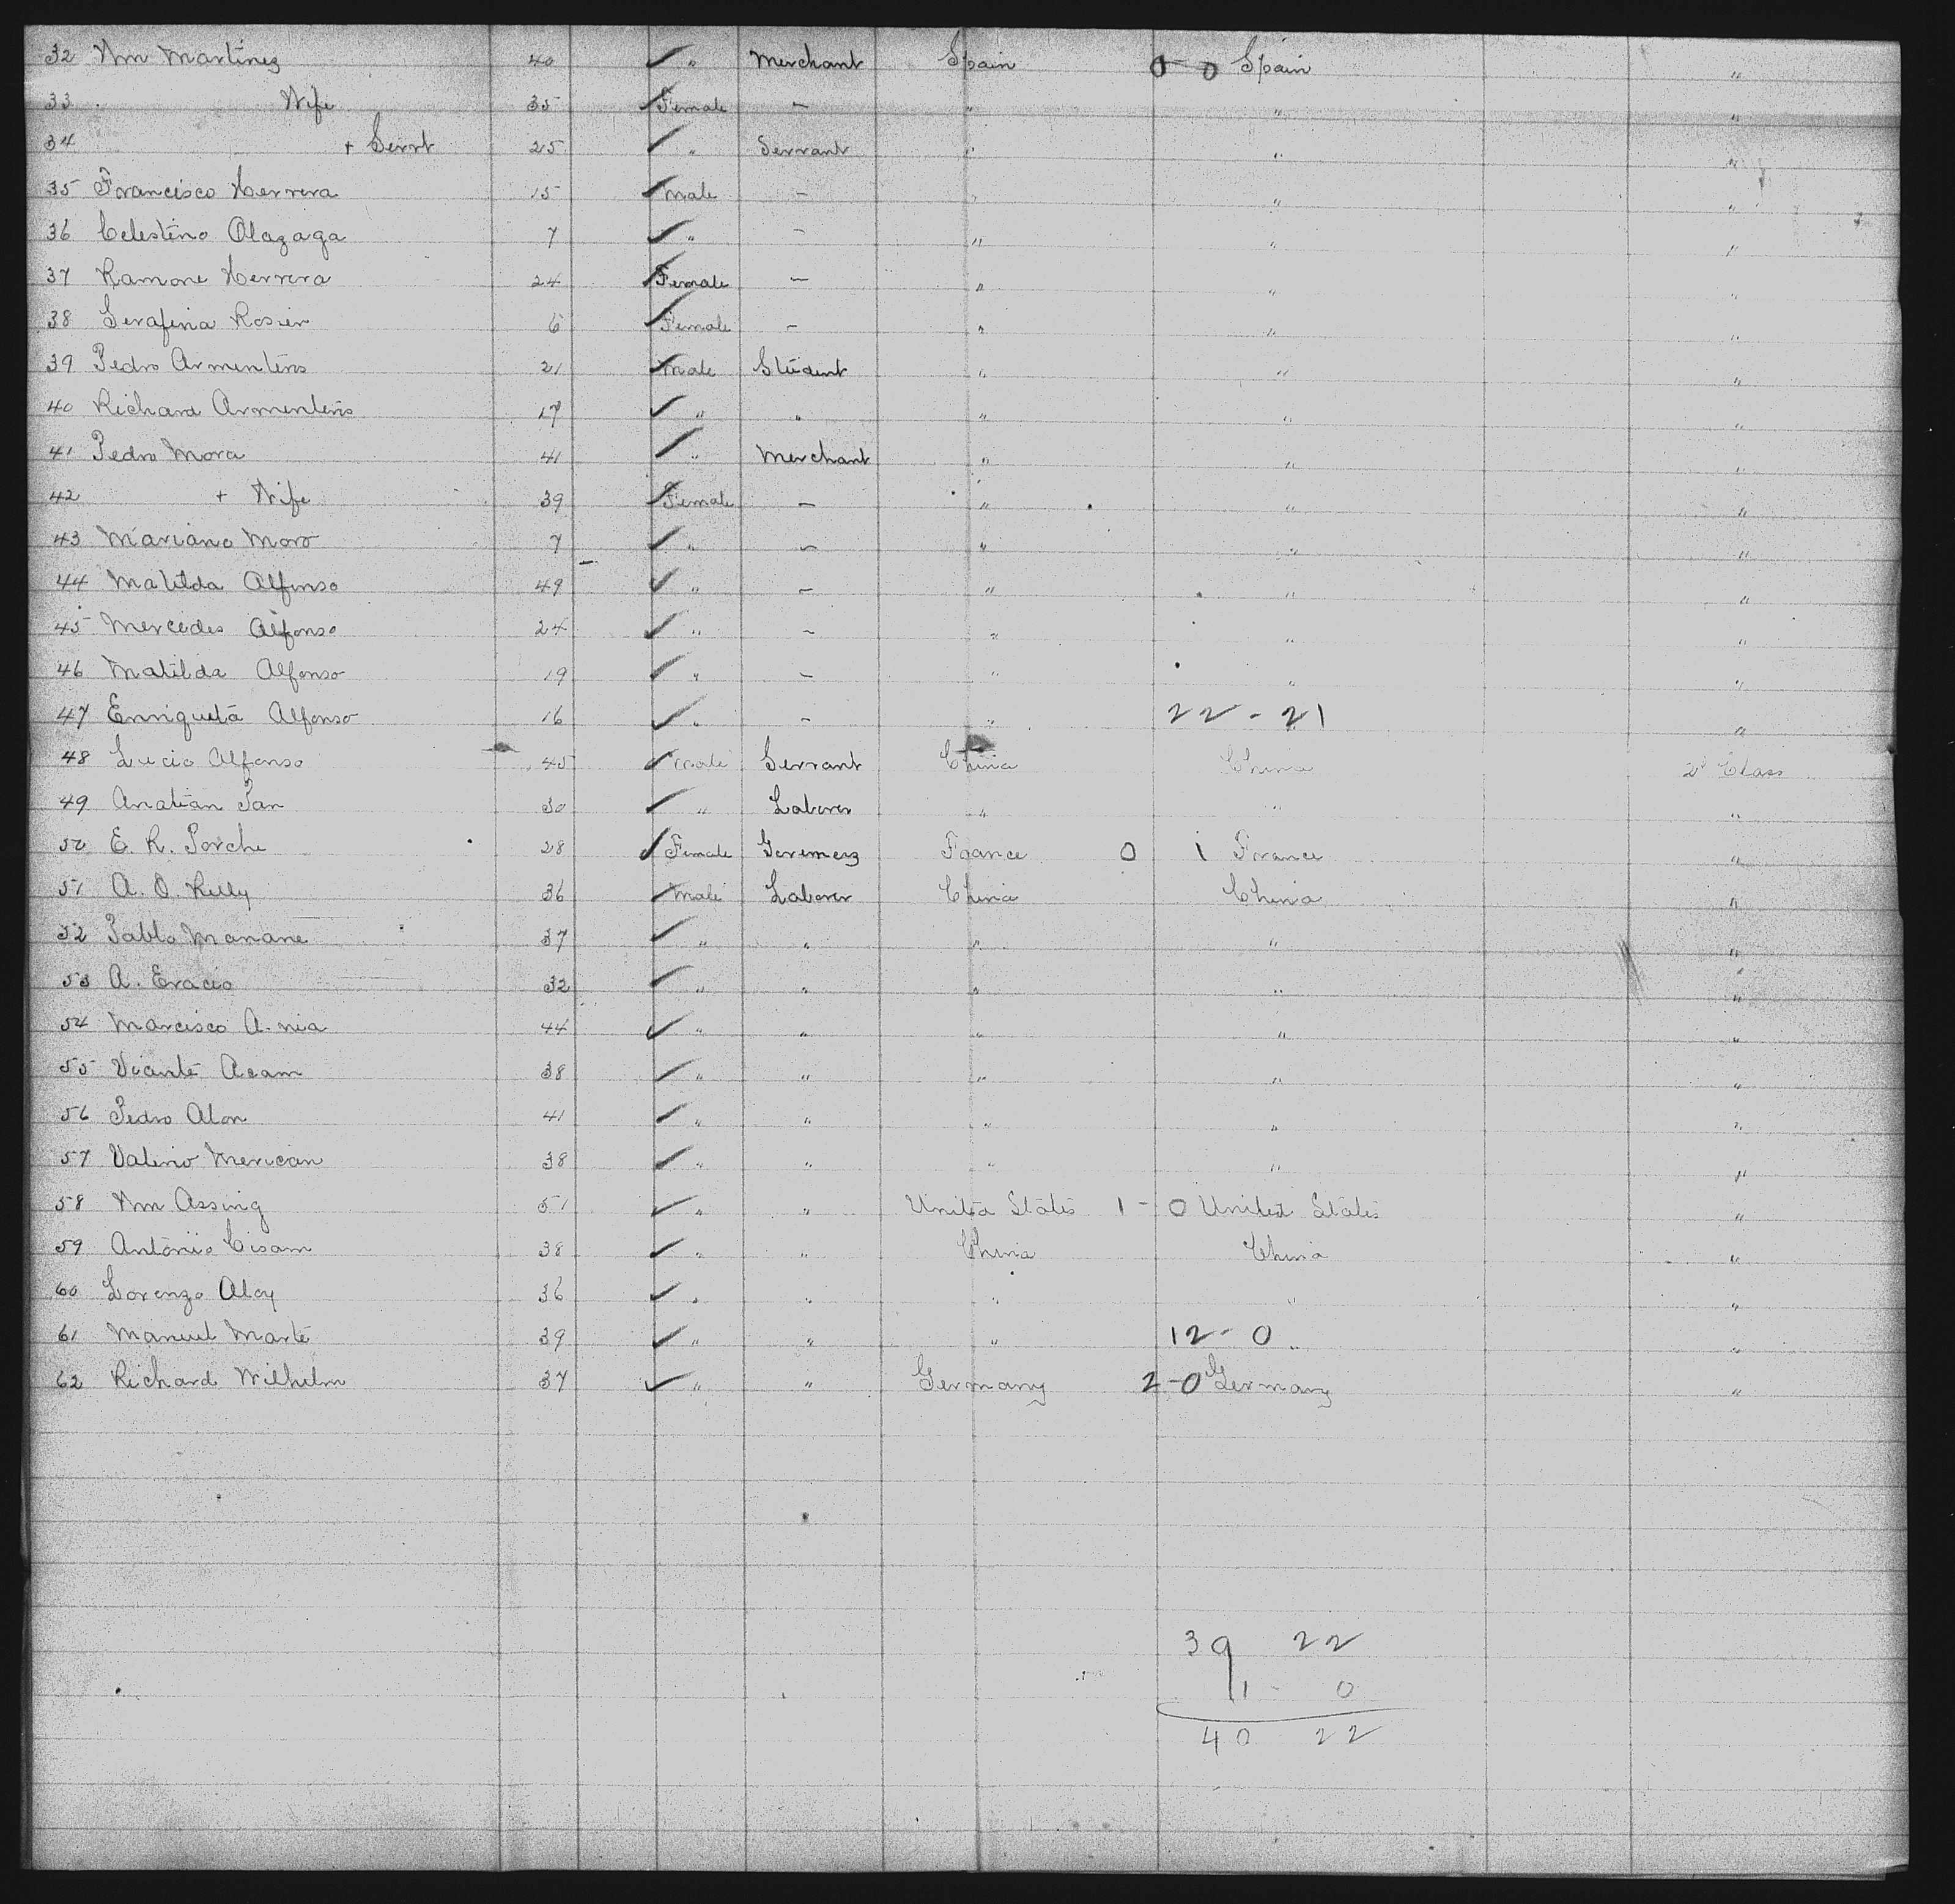 32 Wm Martinez 40 " Merchant Spain 0-0 Spain "
33 Wife 35 Female – " " "
34 + Servt 25 " Servant " " "
35 Francisco Herrera 15 Male – " " "
36 Celestino Olazaga 7 " – " " "
37 Ramone Herrera 24 Female – " " "
38 Serafina Rosier 6 Female – " " "
39 Pedro Armenteros 21 Male Student " " "
40 Richard Armenteros 17 " " " " "
41 Pedro Mora 41 " Merchant " " "
42 + Wife 39 Female – " " "
43 Mariano Moro 7 " – " " "
44 Matilda Alfonso 49 " – " " "
45 Mercedes Alfonso 24 " – " " "
46 Matilda Alfonso 19 " – " " "
47 Enriqueta Alfonso 16 " – " 22 - 21 "
48 Lucio Alfonso 45 Male Servant China China 2d Class
49 Anatian Pan 30 " Laborer " " "
50 E. R. Porche 28 Female France 0 1 France "
51 A. O. Kelly 36 Male Laborer China China "
52 Pablo Manane 37 " " " " "
53 A. Eracio 32 " " " " "
54 Marcisco A. nia 44 " " " " "
55 Vicante Acam 38 " " " " "
56 Pedro Alon 41 " " " " "
57 Valerio Merican 38 " " " " "
58 Wm Assing 51 " " United States 1 - 0 United States "
59 Antonio Cisam 38 " " China China "
60 Lorenzo Aloy 36 " " " " "
61 Manuel Marte 39 " " " 12 - 0 " "
62 Richard Wilhelm 37 " " Germany 2-0 Germany "
39 22
1 - 0
40 22